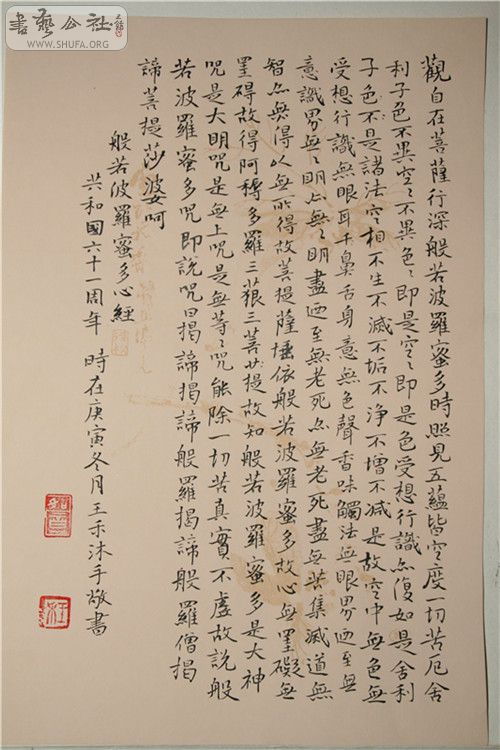 書藝公社
WWW.SHUFA.ORG
觀自在菩薩行深般若波羅蜜多時照見五蘊皆空度一切苦厄舍
利子色不異空〻不異色〻即是空〻即是色受想行識亦復如是舍利
子色不是諸法空相不生不滅不垢不淨不增不減是故空中無色無
受想行識無眼耳鼻舌身意無色聲香味觸法無眼界迺至無
意識界無〻明亦無〻明盡迺至無老死亦無老死盡無苦集滅道無
智亦無得以無所得故菩提薩埵依般若波羅蜜多故心無罣礙無
罣碍故得阿耨多羅三藐三菩提故知般若波羅蜜多是大神
咒是大明咒是無上咒是無等〻咒能除一切苦真實不虛故說般
若波羅蜜多咒即說咒曰揭諦揭諦般羅揭諦般羅僧揭
諦菩提莎婆呵
般若波羅蜜多心經
共和國六十一周年 時在庚寅冬月王禾沐手敬書